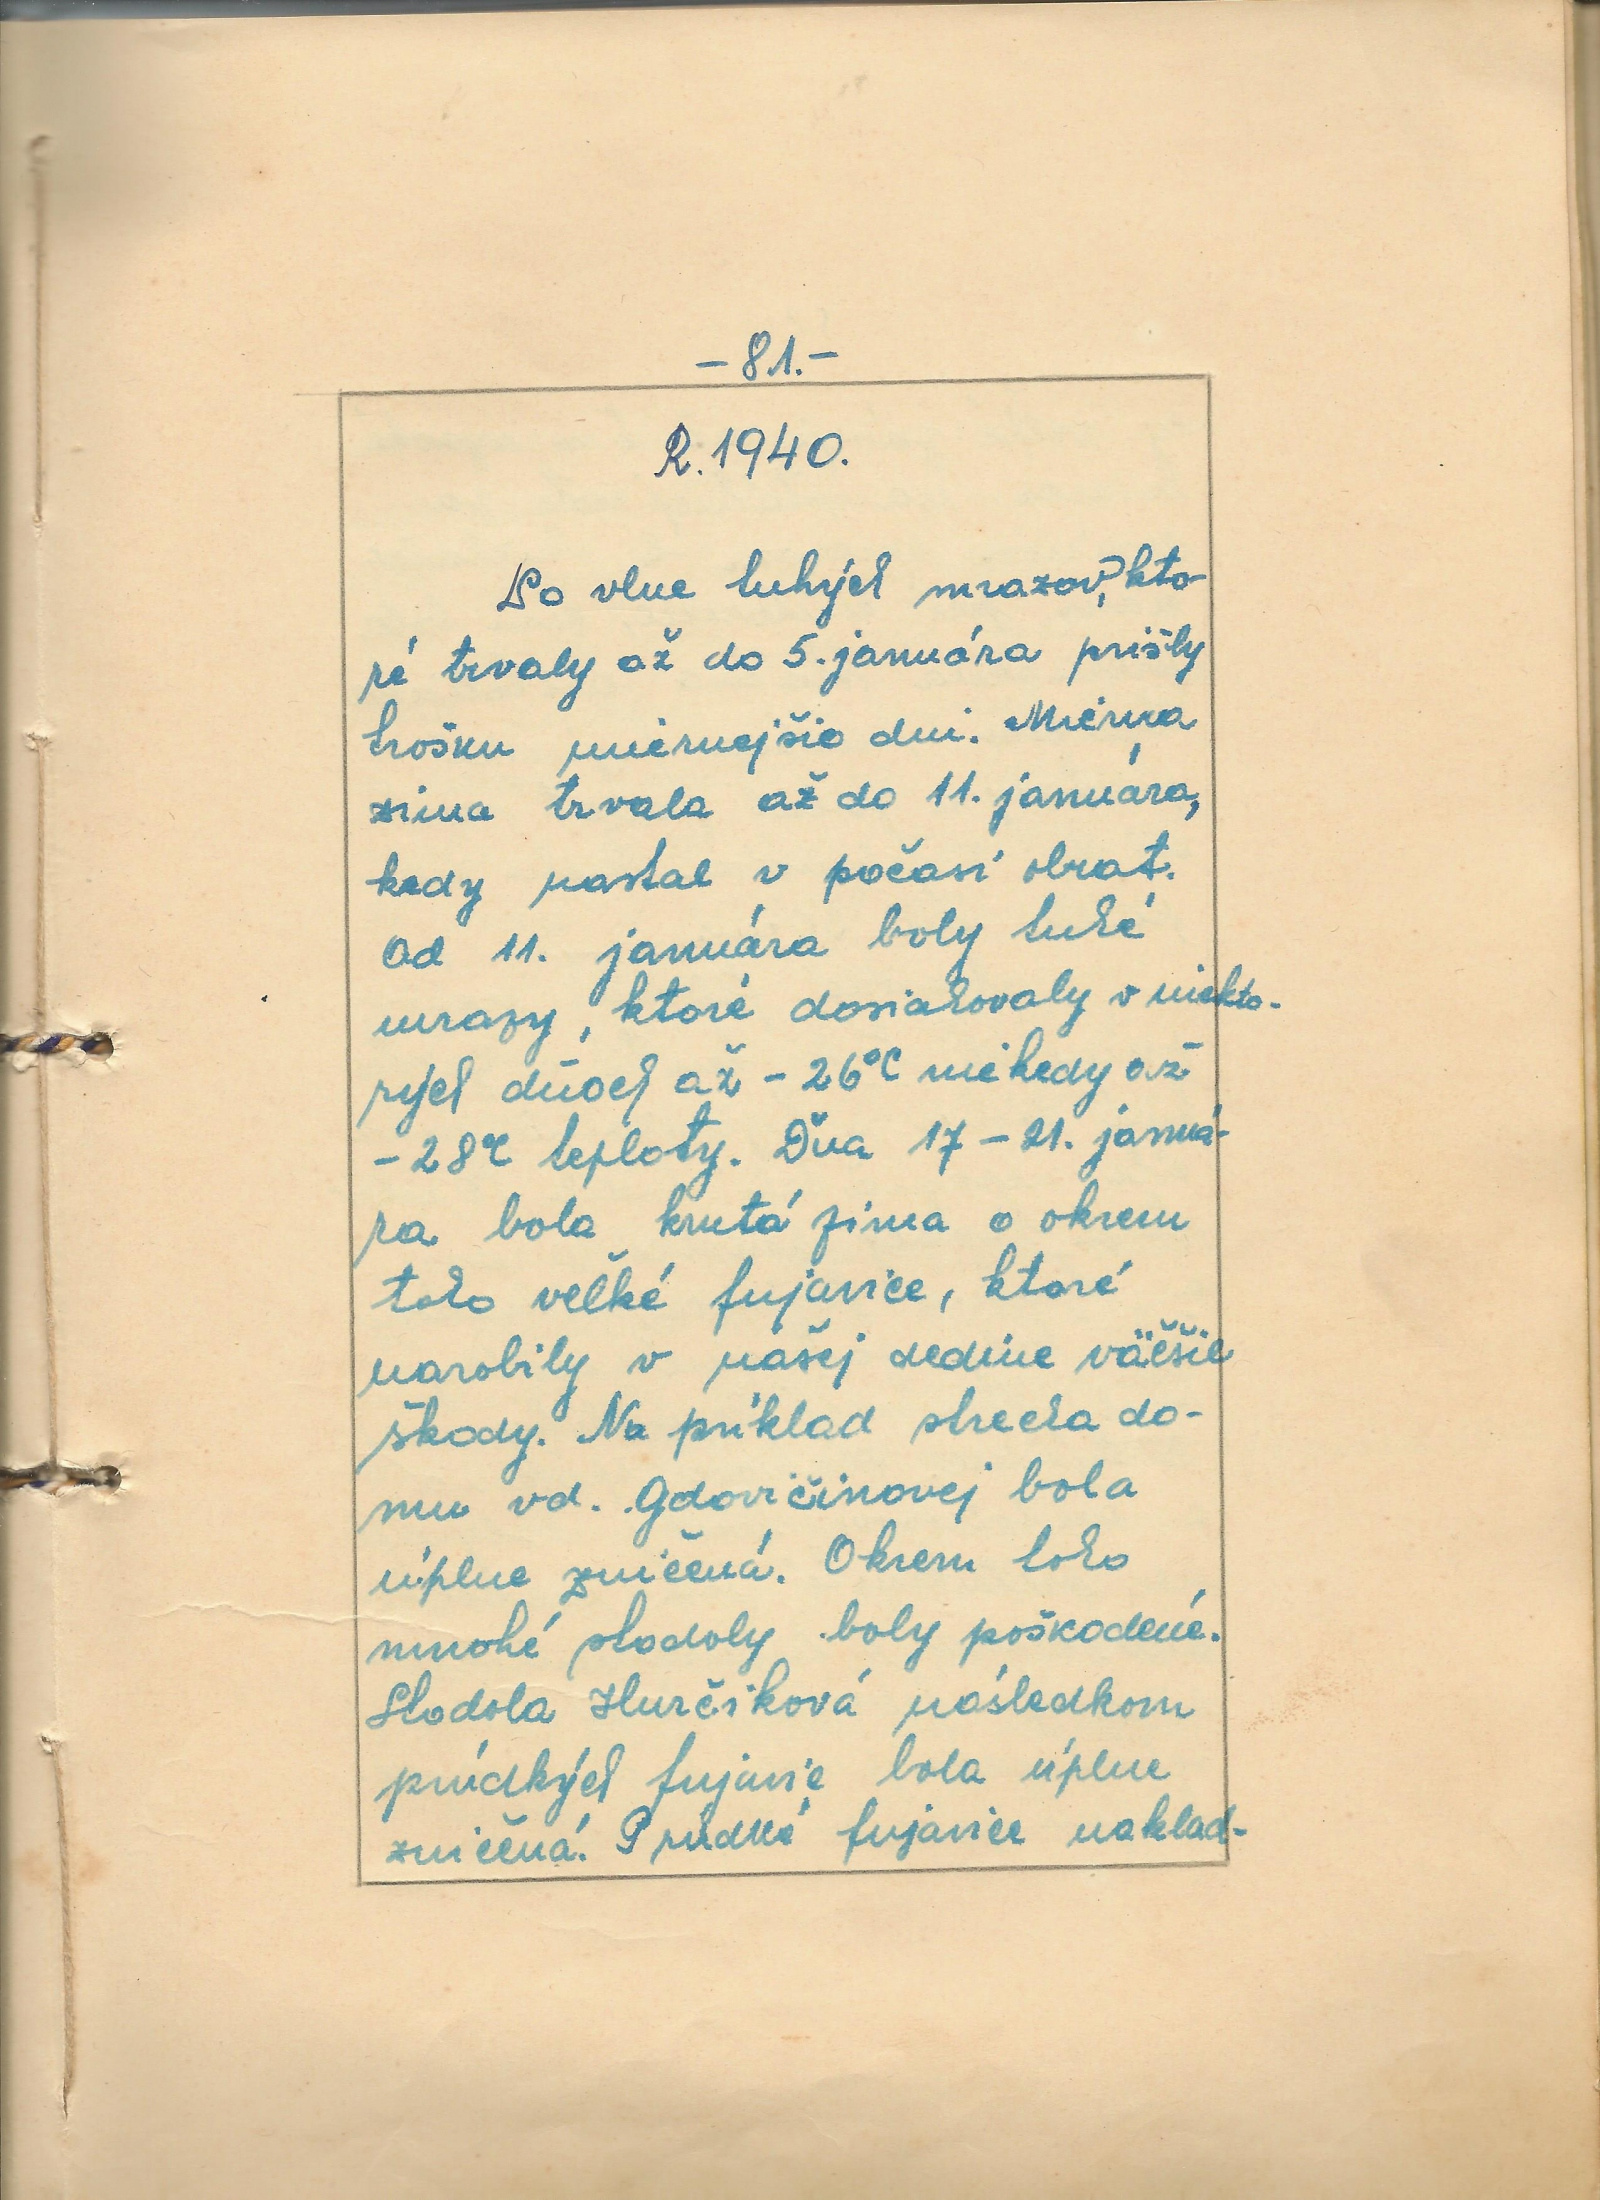 - 81. -
R. 1940.
Po vlne tuhých mrazov, kto-
ré trvaly až do 5. januára prišly
trošku miernejšie dni. Mierna
zima trvala až do 11. januára,
kedy nastal v počasí obrat.
Od 11. januára boly tuhé
mrazy, ktoré dosiahovaly v niekto-
rých dňoch až - 26°C niekedy až
- 28°C teploty. Dňa 17 - 21. januá-
ra bola krutá zima a okrem
toho veľké fujavice, ktoré
narobily v našej dedine väčšie
škody. Na príklad strecha do-
mu vd. Gdovičinovej bola
úplne zničená. Okrem toho
mnohé stodoly boly poškodené.
Stodola Hurčíková následkom
prúdkých fujavíc bola úplne
zničená. Prúdké fujavice naklad-